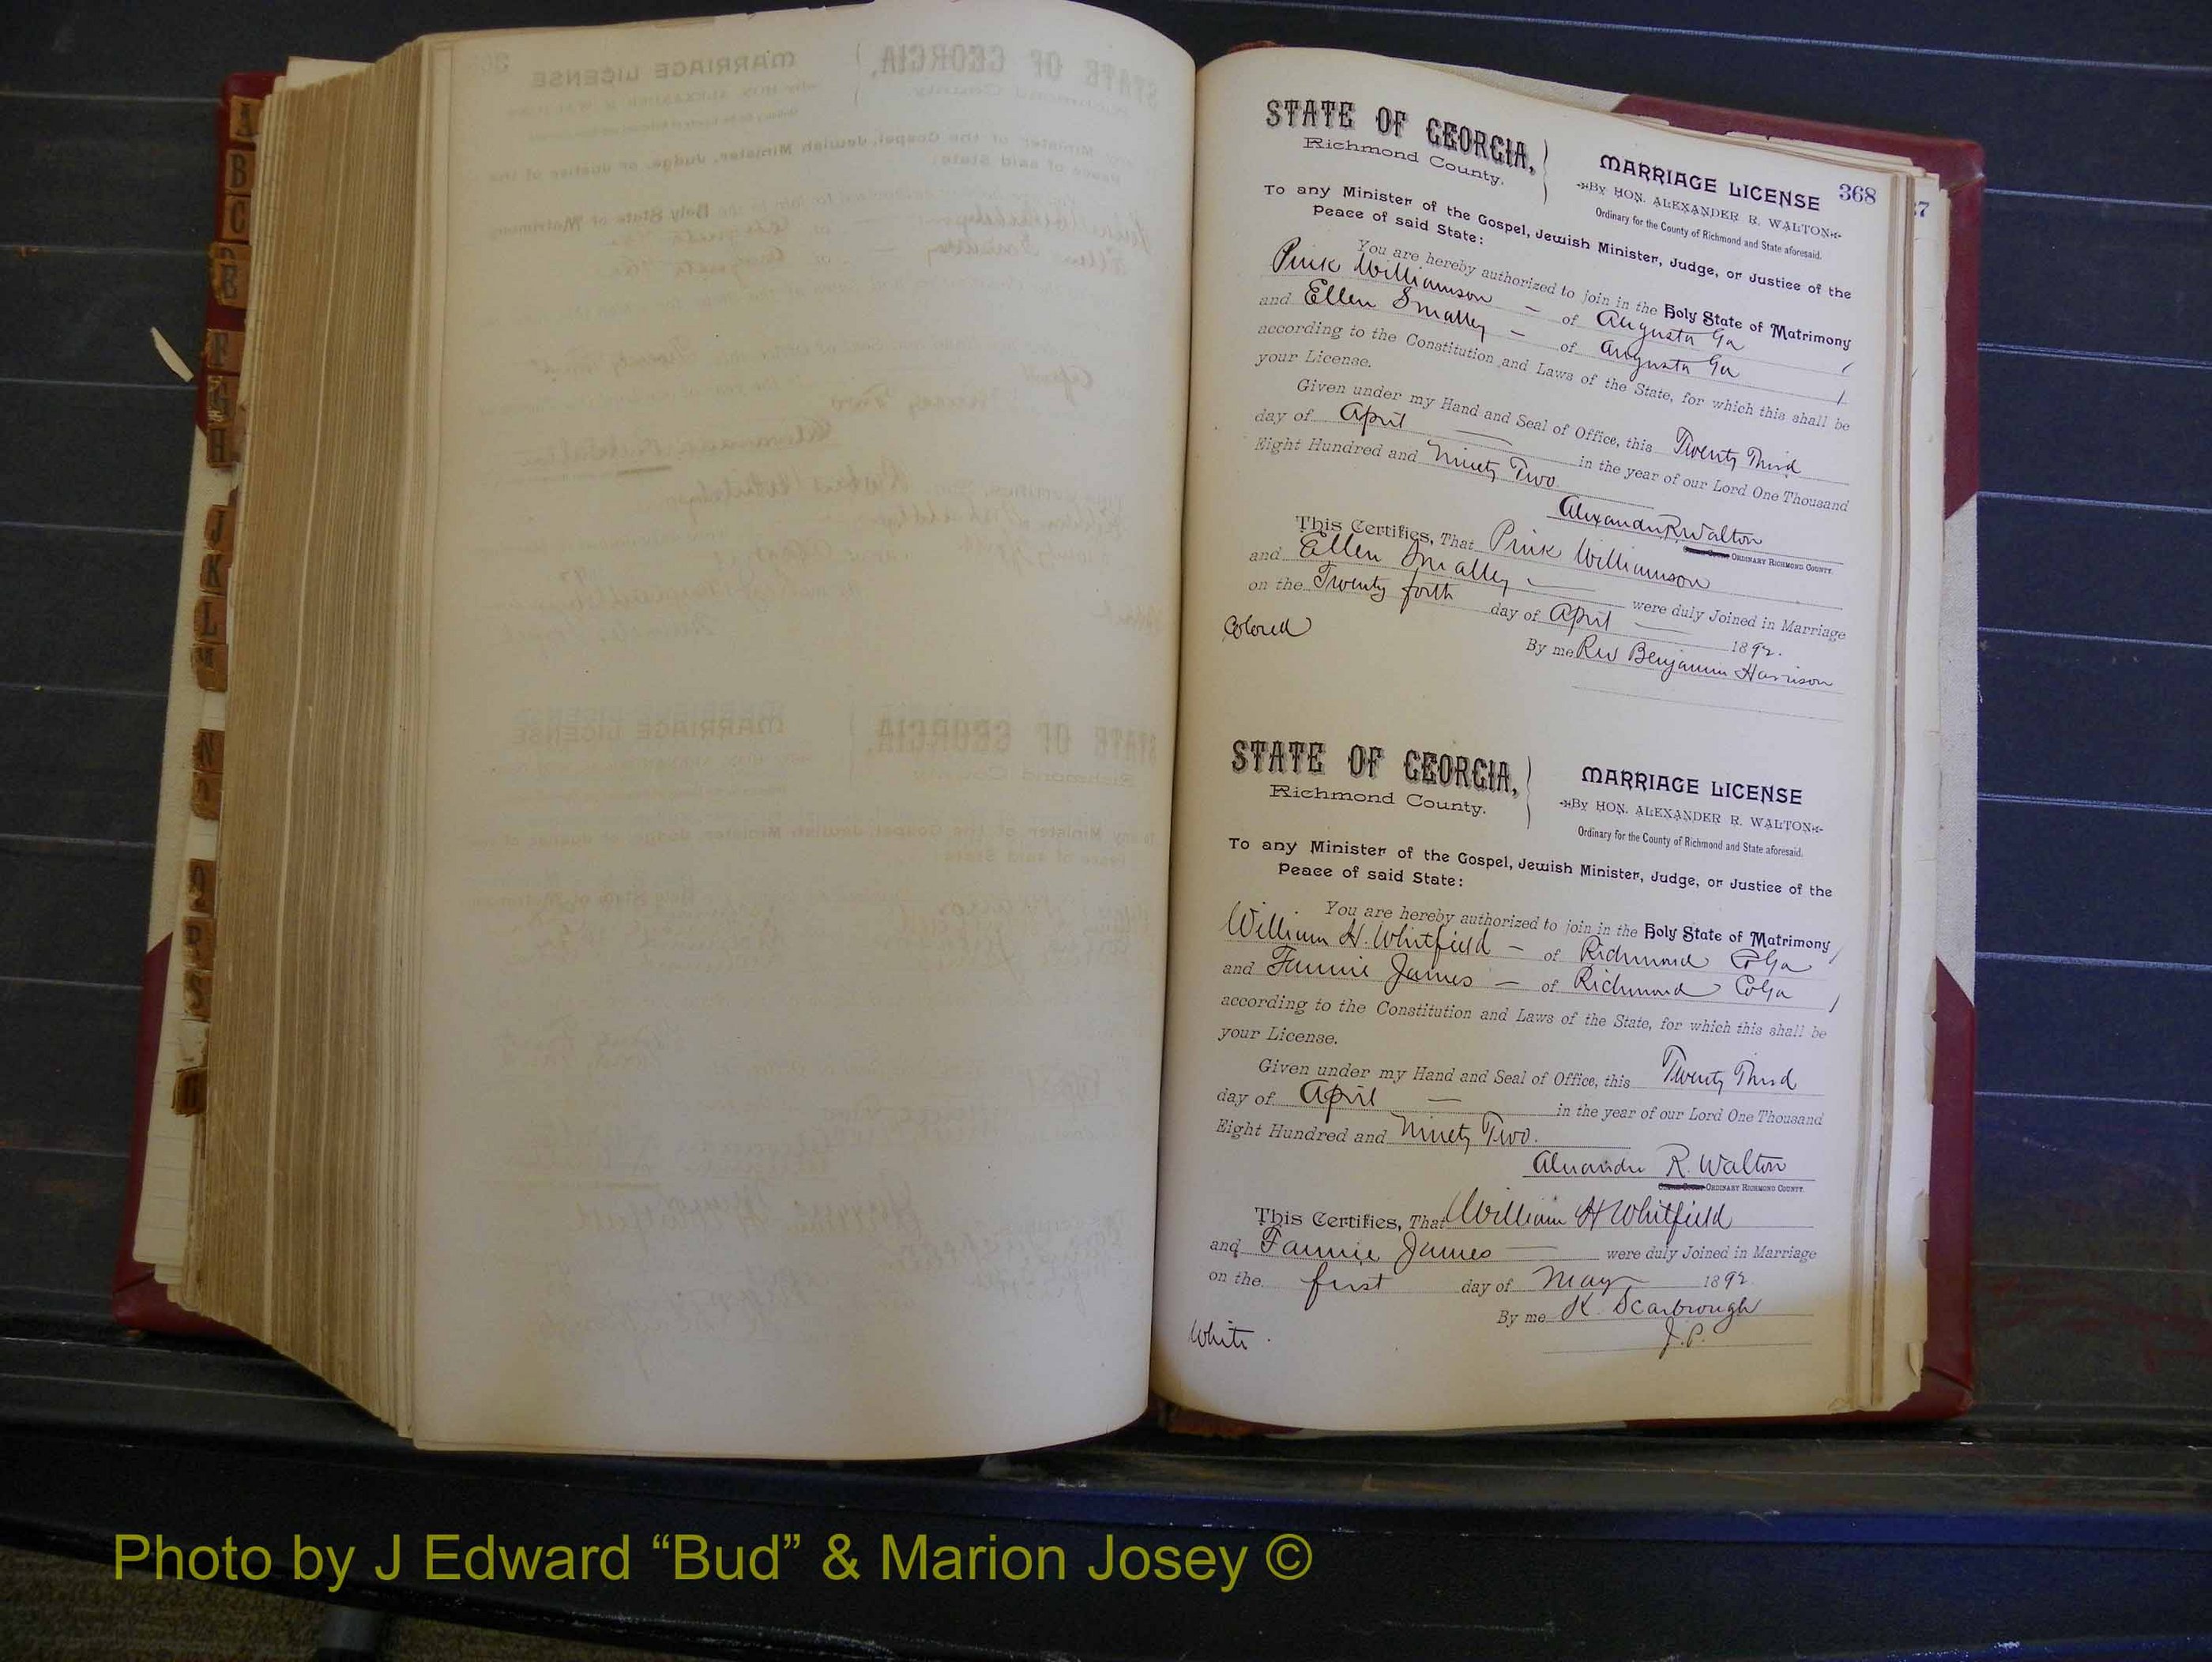 STATE OF GEORGIA,
Richmond County.
MARRIAGE LICENSE 368
By HON. ALEXANDER R. WALTON
Ordinary for the County of Richmond and State aforesaid.
To any Minister of the Gospel, Jewish Minister, Judge, or Justice of the
Peace of said State:
You are hereby authorized to join in the Holy State of Matrimony
Pink Williamson — of Augusta Ga
and Ellen Smalley — of Augusta Ga
according to the Constitution and Laws of the State, for which this shall be
your License.
Given under my Hand and Seal of Office, this Twenty Third
day of April — in the year of our Lord One Thousand
Eight Hundred and Ninety Two
Alexander R Walton
ORDINARY RICHMOND COUNTY.
This Certifies, That Pink Williamson
and Ellen Smalley — were duly Joined in Marriage
on the Twenty forth day of April — 1892.
Colored
By me Rev Benjamin Harrison
STATE OF GEORGIA,
Richmond County.
MARRIAGE LICENSE
By HON. ALEXANDER R. WALTON
Ordinary for the County of Richmond and State aforesaid.
To any Minister of the Gospel, Jewish Minister, Judge, or Justice of the
Peace of said State:
You are hereby authorized to join in the Holy State of Matrimony
William H. Whitfield — of Richmond Co Ga
and Fannie James — of Richmond Co Ga
according to the Constitution and Laws of the State, for which this shall be
your License.
Given under my Hand and Seal of Office, this Twenty Third
day of April — in the year of our Lord One Thousand
Eight Hundred and Ninety Two.
Alexander R. Walton
ORDINARY RICHMOND COUNTY.
This Certifies, That William H Whitfield
and Fannie James — were duly Joined in Marriage
on the first day of May 1892
By me K. Scarbrough
J. P.
White.
A
B
C
F
G
H
J
K
L
M
N
S
Photo by J Edward “Bud” & Marion Josey ©